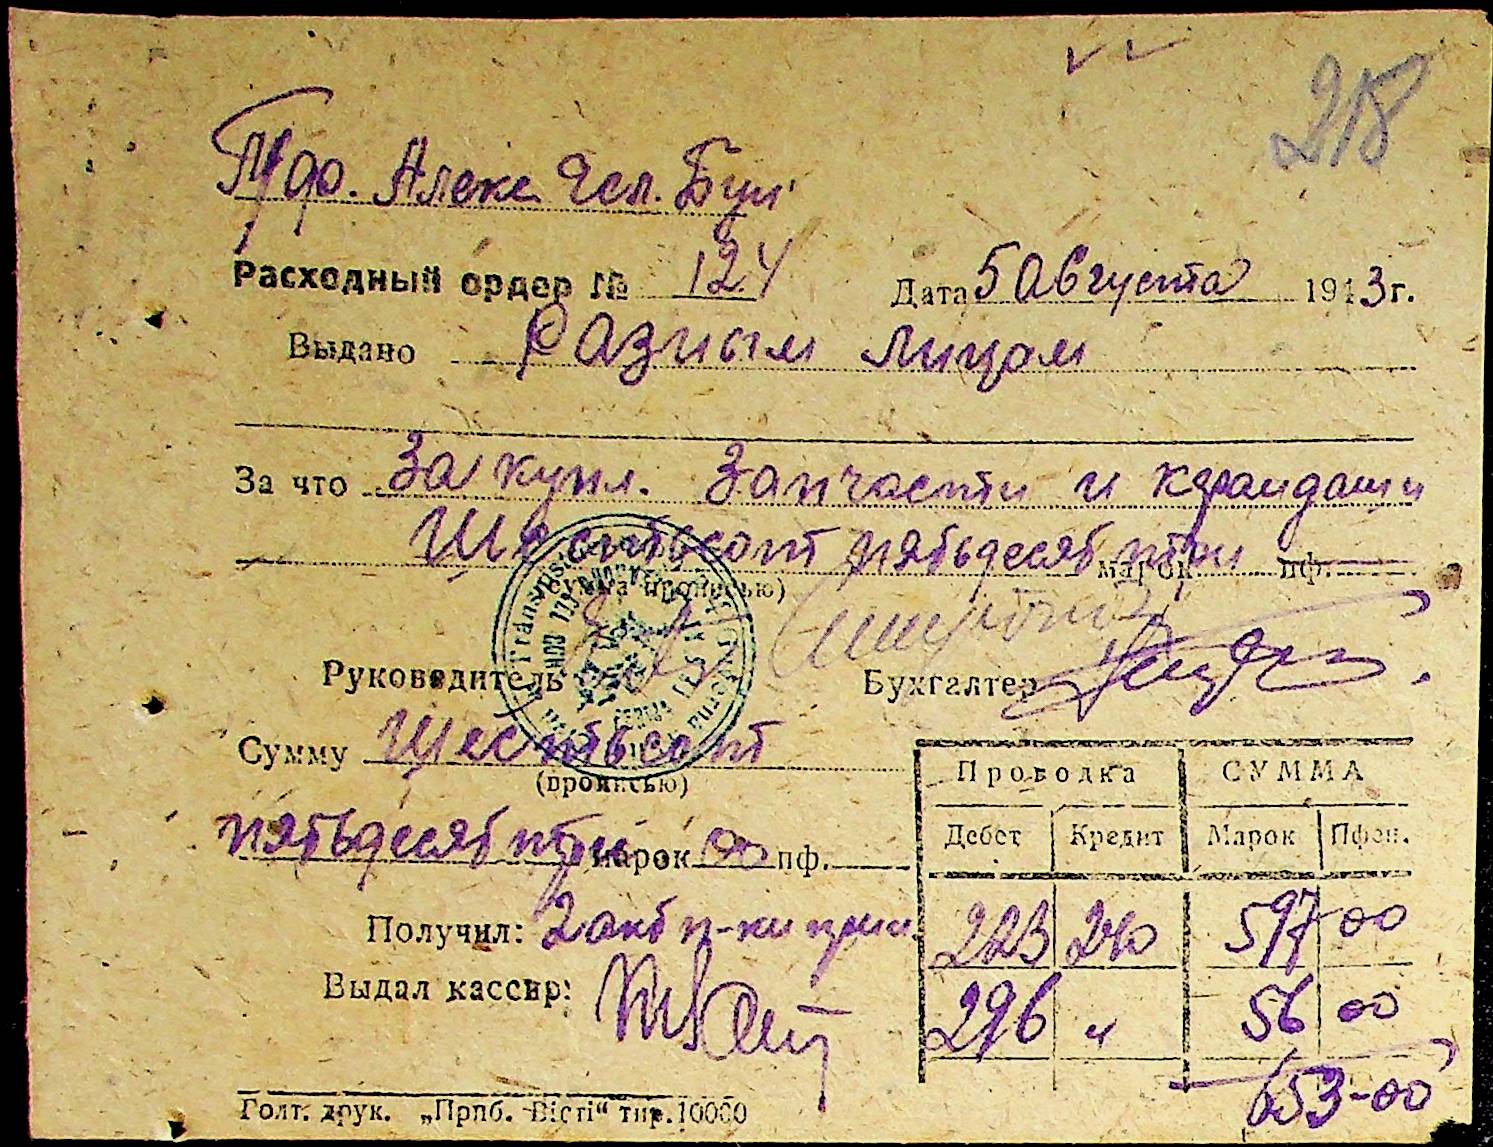 218
Расходный ордер № 124 Дата 5 Августа 1943 г.
Выдано Разным лицам
За что За купл. Запчасти и карандаши
Шестьсот пятьдесят три марок пф.
Руководитель Бухгалтер
Сумму Шестьсот
(прописью)
пятьдесят три марок 00 пф.
Получил: 2 акта п-ки
Выдал кассир:
Проводка СУММА
Дебет Кредит Марок Пфен.
223 240 597 00
296 " 56 00
653-00
Голт. друк. „Прпб. Вісті“ тир. 10000